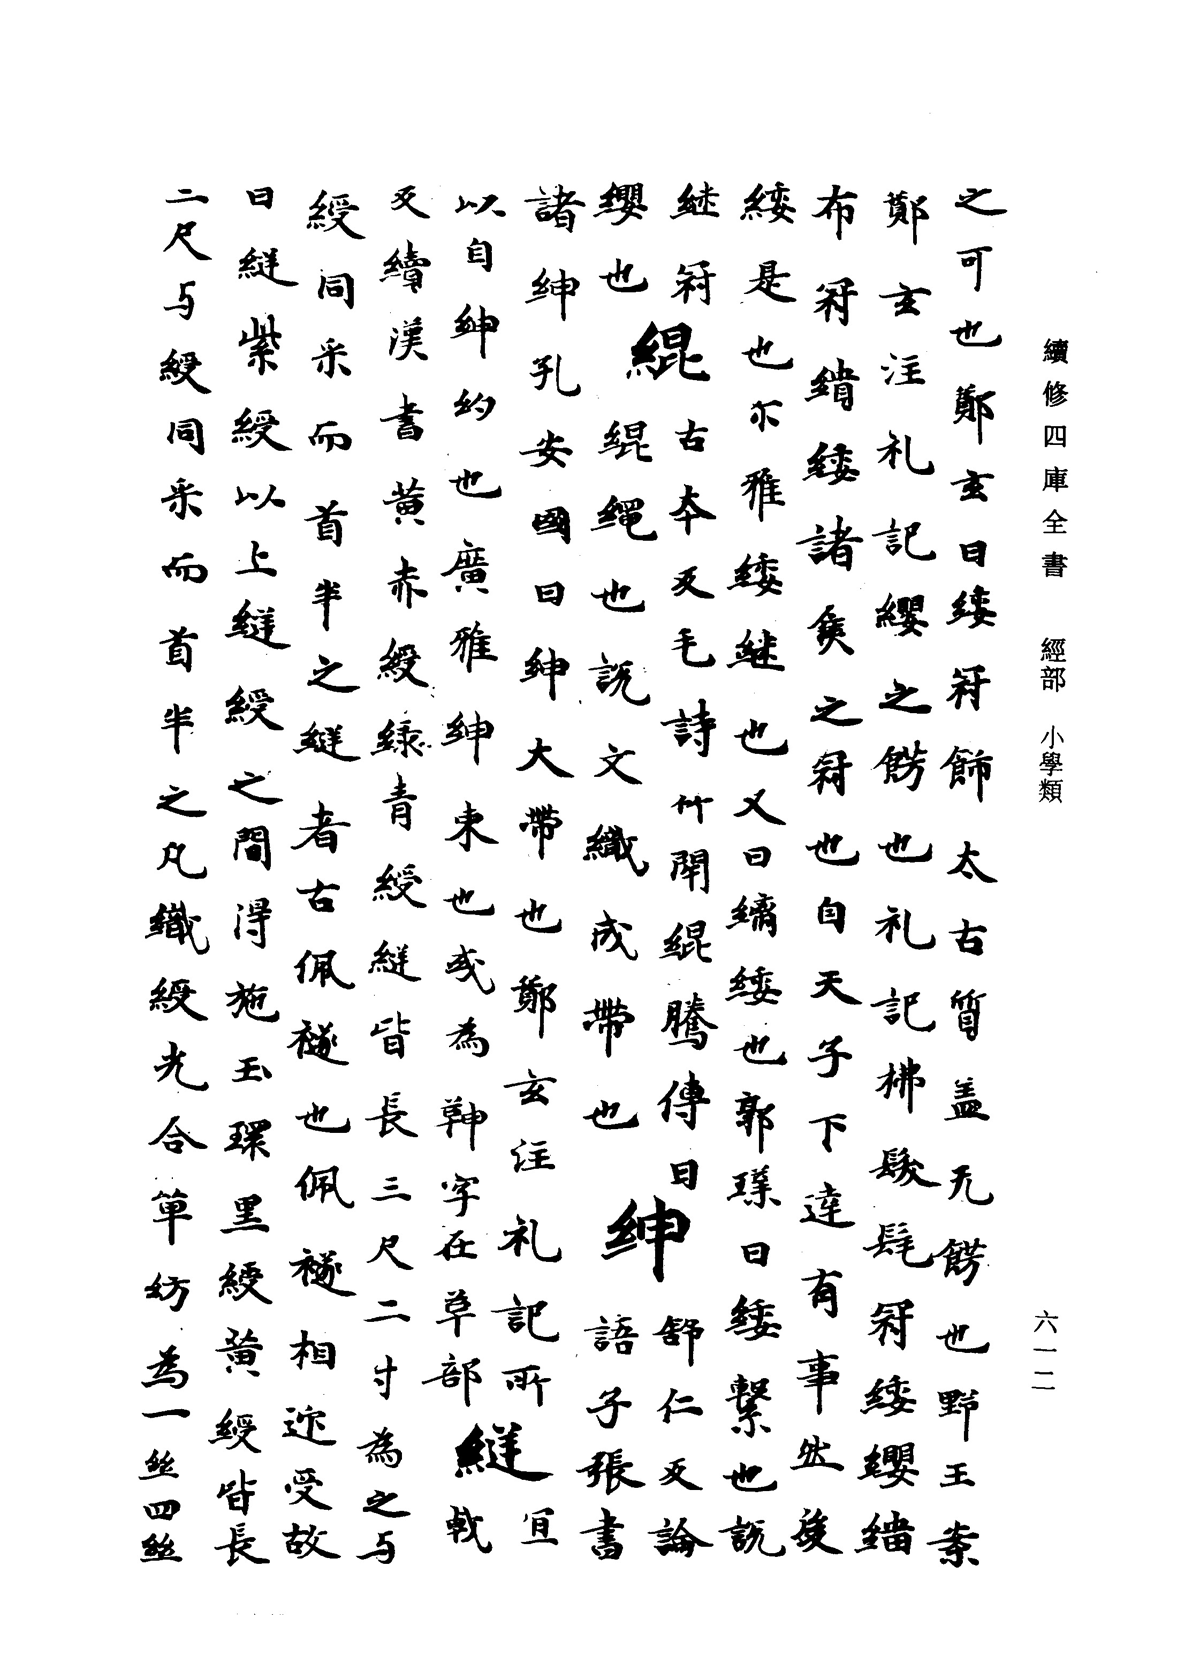 續修四庫全書 經部 小學類
六一二
之可也鄭玄曰緌冠飾太古質盖无餝也野王案
鄭玄注礼記纓之餝也礼記拂髮髦冠緌纓緇
布冠繢緌諸侯之冠也自天子下達有事然後
緌是也尒雅緌継也又曰纗緌也郭璞曰緌繫也說
継冠
纓也
緄 古本反毛詩竹閇緄縢傳曰
緄繩也說文織成帶也
紳 舒仁反論
語子張書
諸紳孔安國曰紳大帶也鄭玄注礼記所
以自紳約也廣雅紳束也或為鞞字在革部
縌 宜
戟
反續漢書黃赤綬緑青綬縌皆長三尺二寸為之与
綬同采而首半之縌者古佩襚也佩襚相迎受故
曰縌紫綬以上縌綬之間得施玉環黑綬黃綬皆長
二尺与綬同采而首半之凡織綬先合單紡為一絲四絲